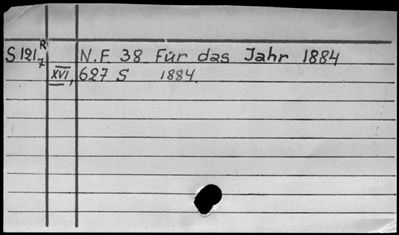 S 121 R/7 N.F. 38 Für das Jahr 1884
XVI, 627 S 1884.